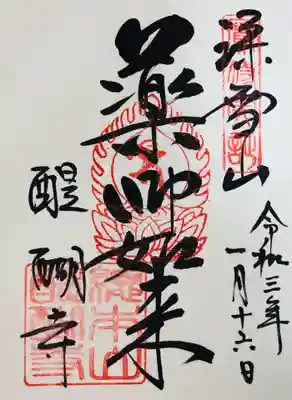 深雪山
令和三年
一月十六日
藥師如来
醍醐寺
總本山
醍醐寺